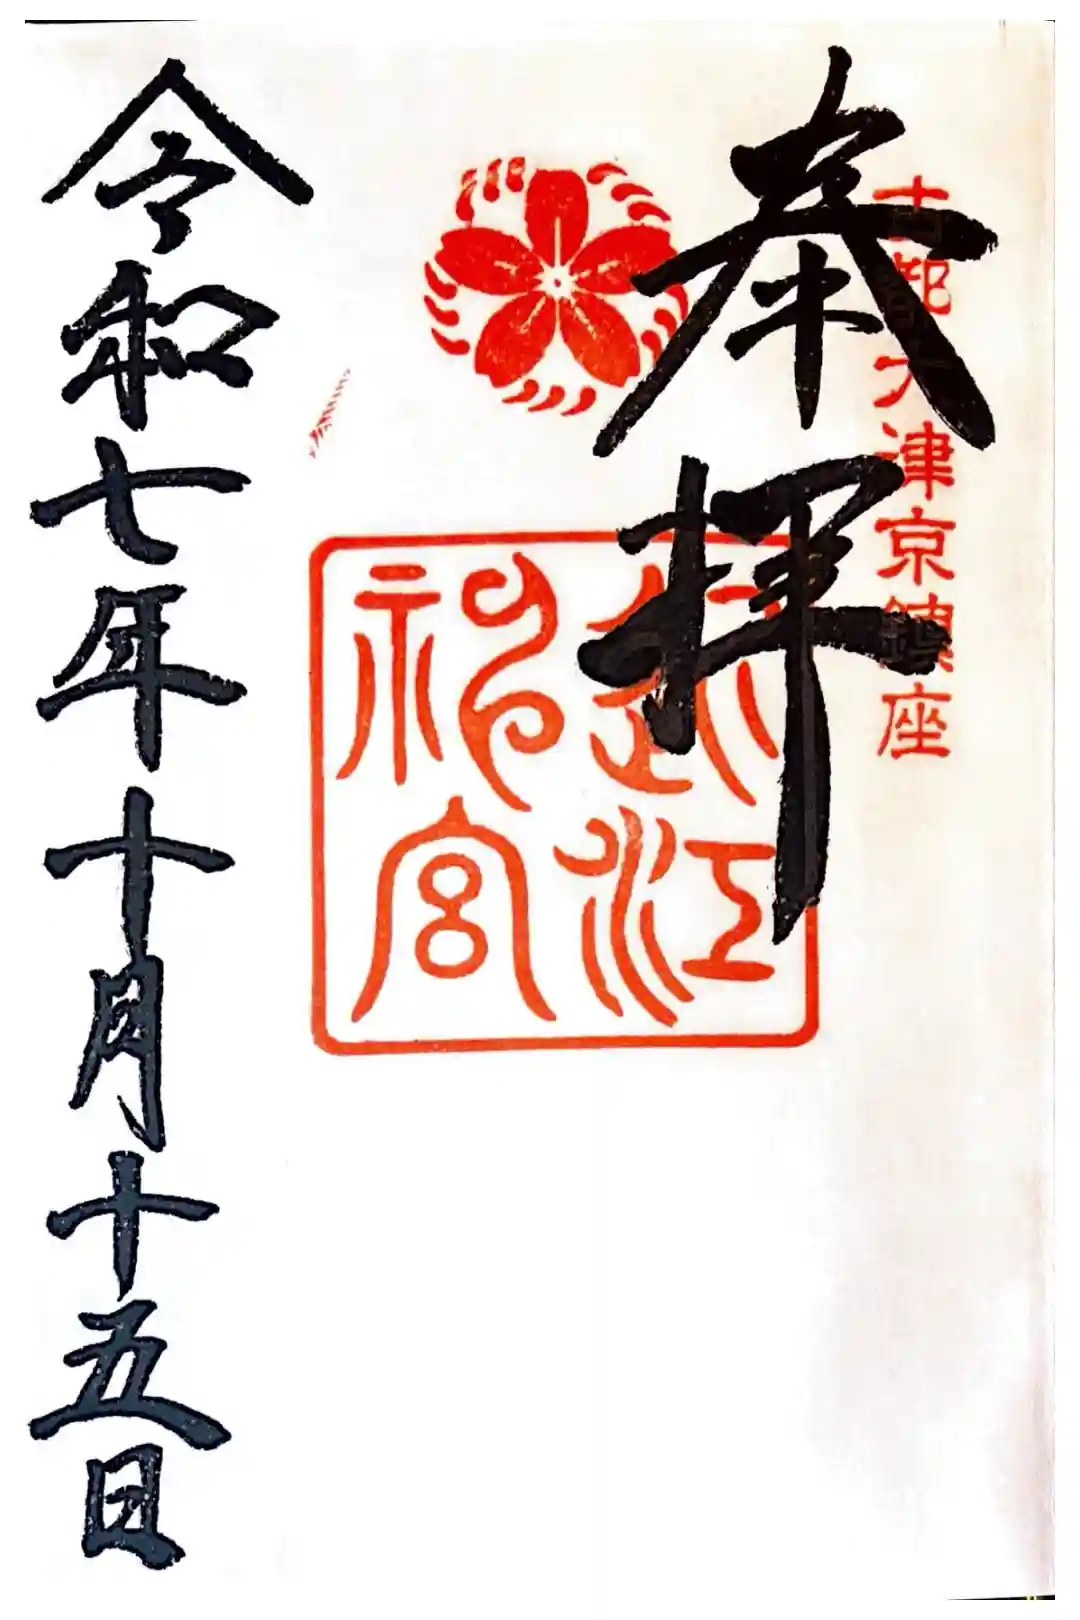 奉拝
古都大津京鎮座
近江神宮
令和七年十月十五日